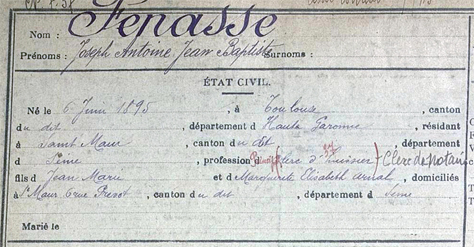 Nom : Fepasse
Prénoms : Joseph Antoine Jean Baptiste Surnoms :
ÉTAT CIVIL.
Né le 6 Juin 1895, à Toulouse, canton
du dit, département d Haute Garonne, résidant
à Saint Maur, canton du dit, département
d Seine, profession d clerc d'huissier Clerc de notaire
fils d Jean Marie et d Marguerite Elisabeth Arnal, domiciliés
à St Maur 6 rue Prevot, canton du dit, département d Seine
Marié le